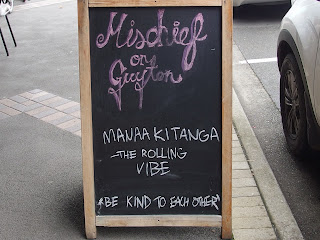 Mischief
on
Guyton
MANAAKITANGA
-THE ROLLING
VIBE
*BE KIND TO EACH OTHER*